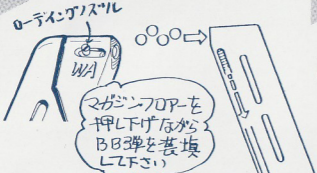 ローディングノズル
WA
マガジンフロアーを
押し下げながら
BB弾を装填
して下さい